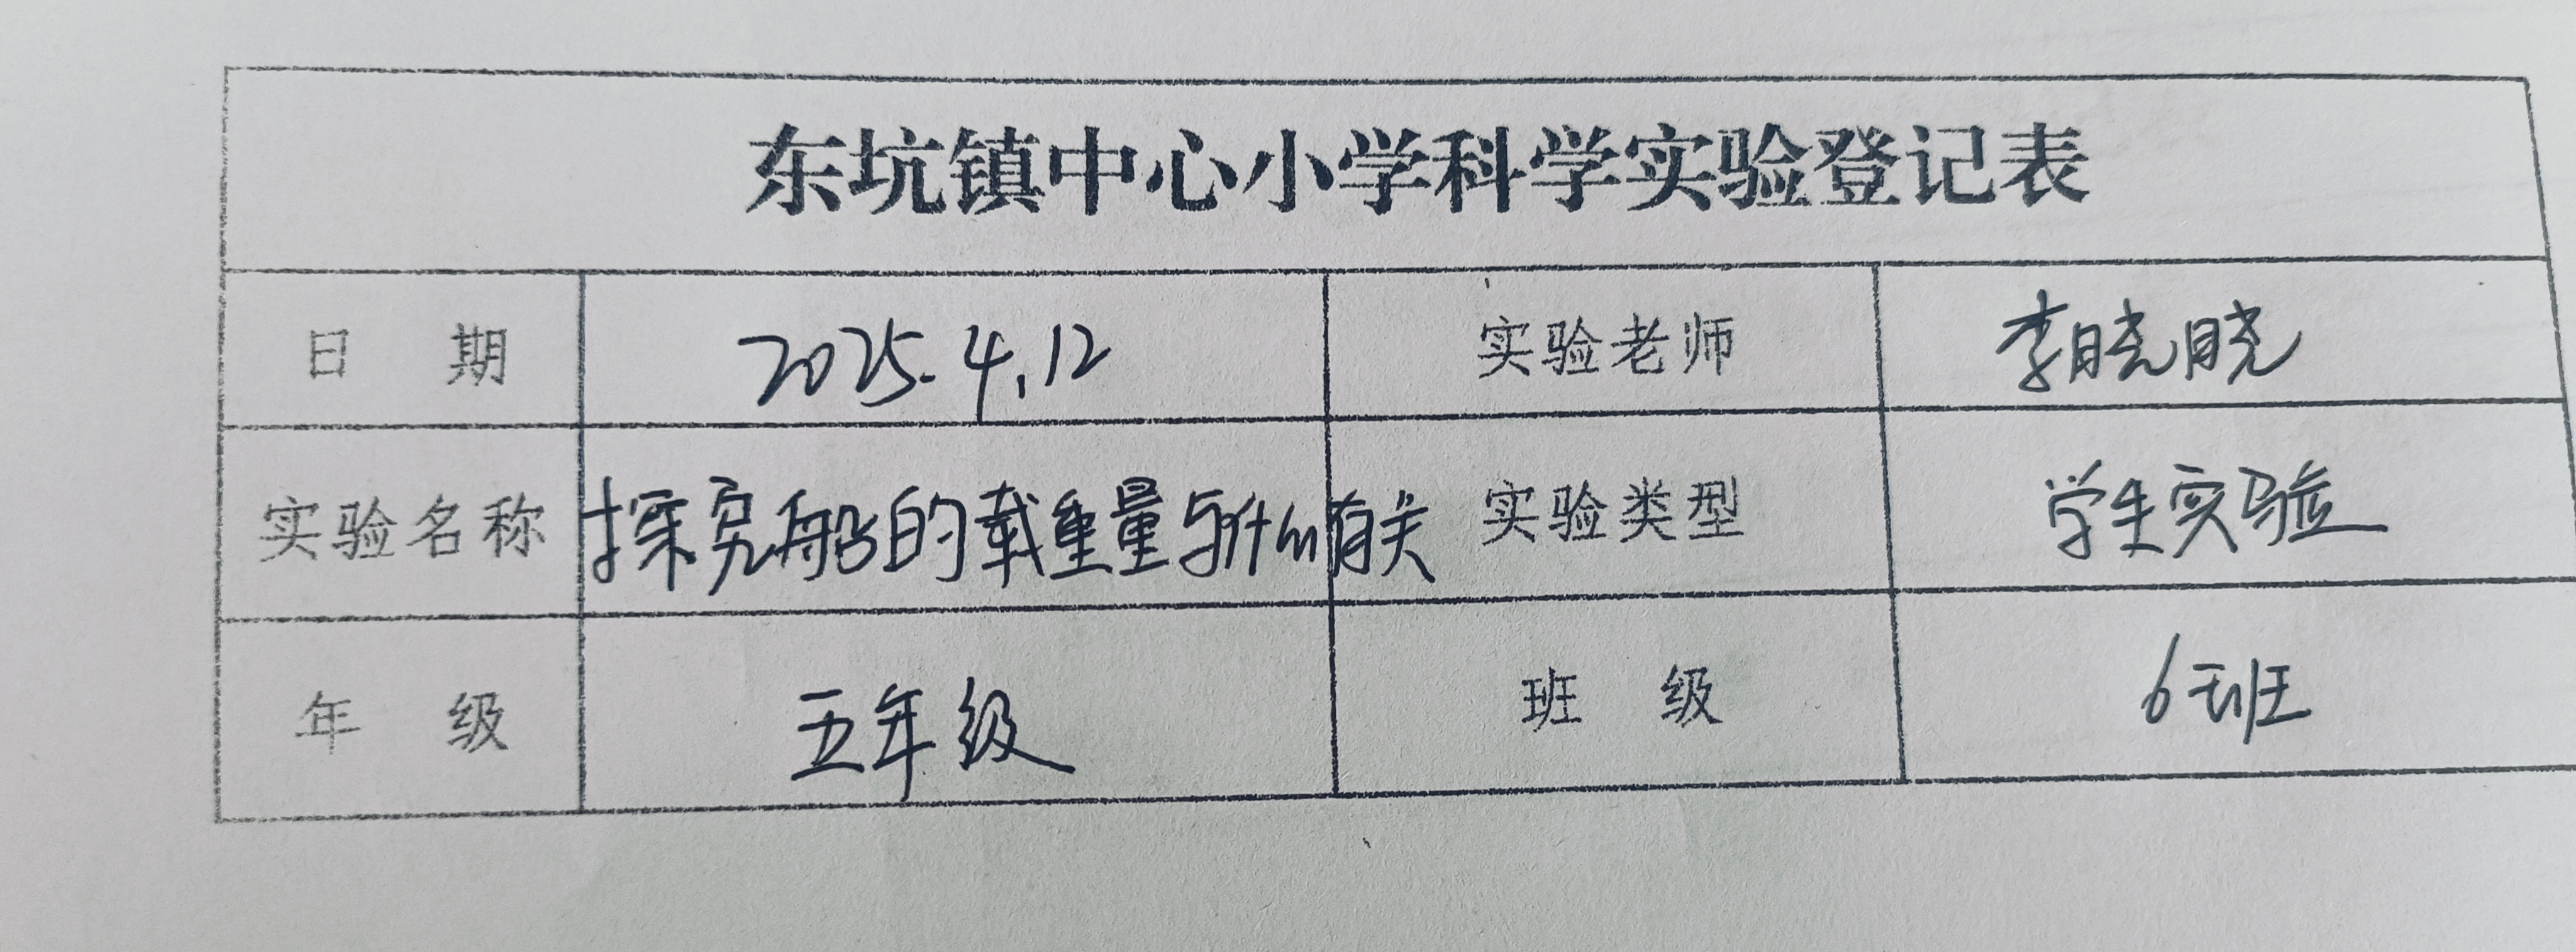 东坑镇中心小学科学实验登记表
日 期 2025.4.12 实验老师 李晓晓
实验名称 探究船的载重量与什么有关 实验类型 学生实验
年 级 五年级 班 级 6班